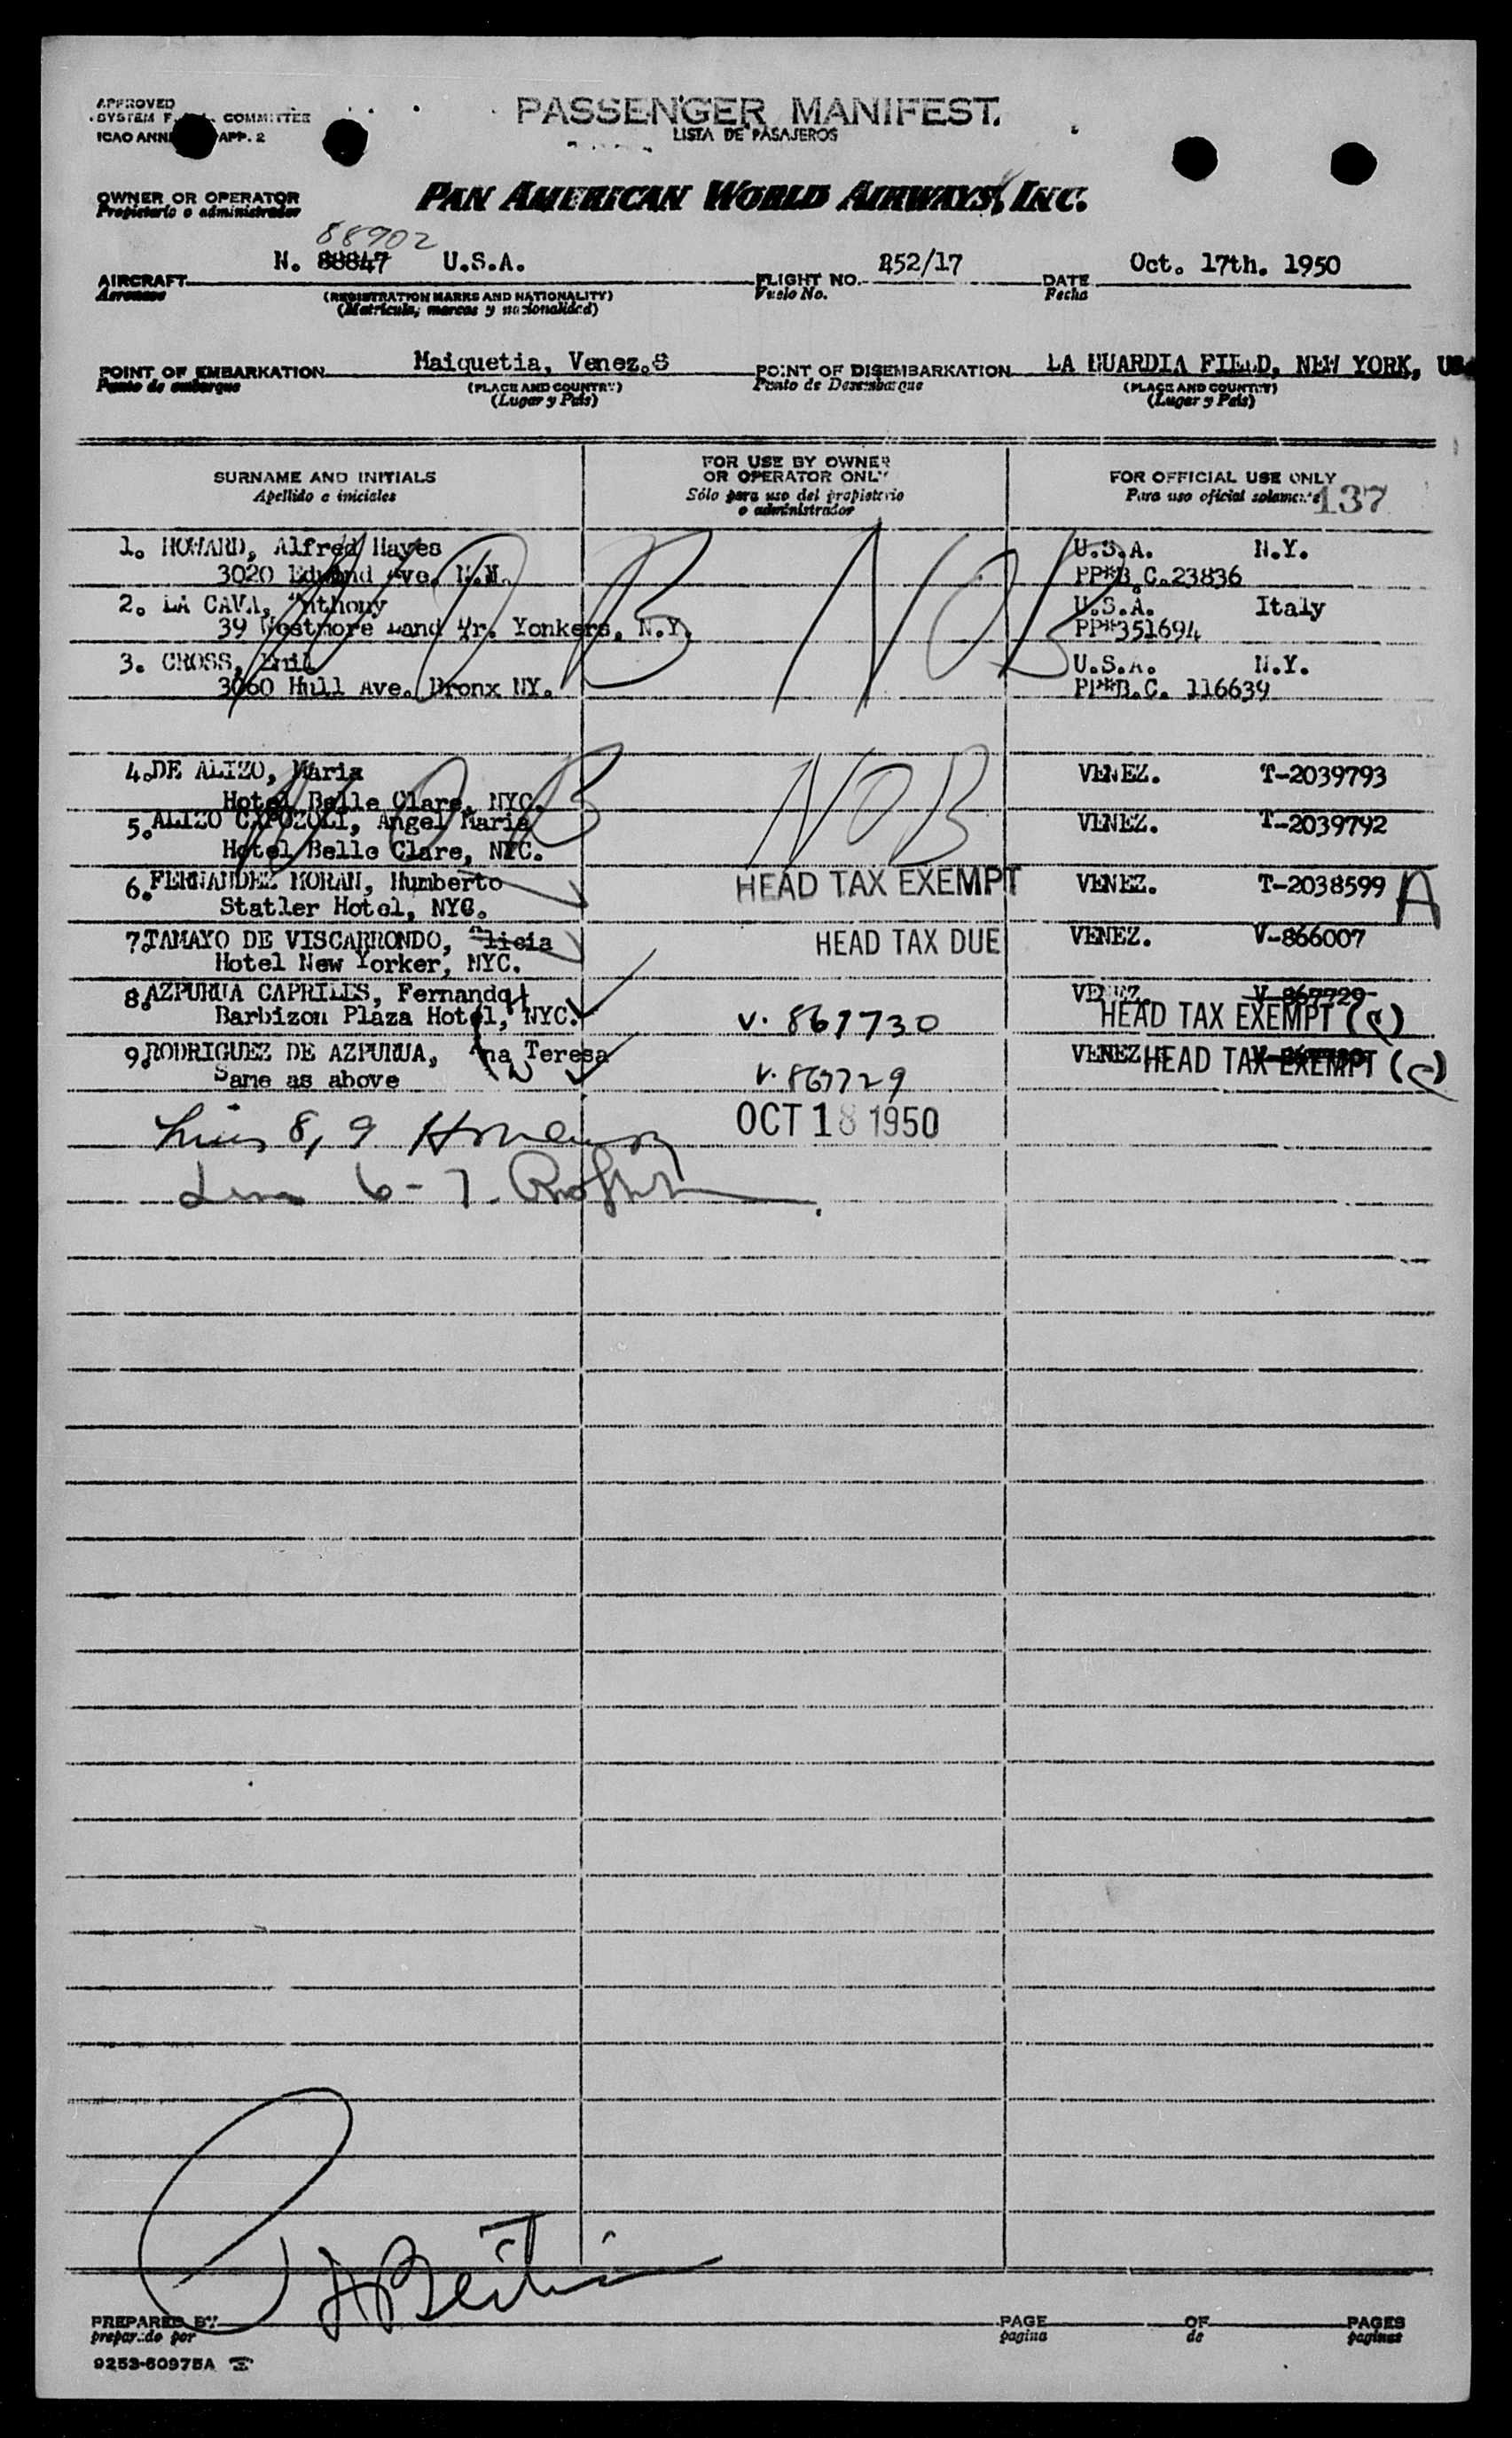 APPROVED
SYSTEM F. COMMITTEE
ICAO ANNE APP. 2
PASSENGER MANIFEST.
LISTA DE PASAJEROS
OWNER OR OPERATOR
Propietario o administrador
PAN AMERICAN WORLD AIRWAYS, INC.
88902
AIRCRAFT N. 88847 U.S.A. FLIGHT NO. 252/17 DATE Oct. 17th. 1950
Aeronave (REGISTRATION MARKS AND NATIONALITY) Vuelo No. Fecha
(Matricula; marcas y nacionalidad)
POINT OF EMBARKATION Maiquetia, Venez.S POINT OF DISEMBARKATION LA GUARDIA FIELD, NEW YORK, US
Punto de embarque (PLACE AND COUNTRY) Punto de Desembarque (PLACE AND COUNTRY)
(Lugar y País) (Lugar y País)
SURNAME AND INITIALS FOR USE BY OWNER FOR OFFICIAL USE ONLY
Apellido e iniciales OR OPERATOR ONLY Para uso oficial solamente 137
Sólo para uso del propietario
o administrador
1. HOWARD, Alfred Hayes U.S.A. N.Y.
3020 Edwand Ave. PP#B.C.23836
2. LA CAVA, Anthony U.S.A. Italy
39 Westmore Land Dr. Yonkers, N.Y. PP#351694
3. CROSS, Emil U.S.A. N.Y.
3060 Hull Ave. Bronx NY. PP#B.C. 116639
NOB NOB
4. DE ALIZO, Maria VENEZ. T-2039793
Hotel Belle Clare, NYC.
5. ALIZO CAPOZOLI, Angel Maria VENEZ. T-2039792
Hotel Belle Clare, NYC.
NOB NOB
6. FERNANDEZ MORAN, Humberto HEAD TAX EXEMPT VENEZ. T-2038599 A
Statler Hotel, NYC.
7. TAMAYO DE VISCARRONDO, Alicia HEAD TAX DUE VENEZ. V-866007
Hotel New Yorker, NYC.
8. AZPURUA CAPRILES, Fernando VENEZ. V-867729
Barbizon Plaza Hotel, NYC. V. 867730 HEAD TAX EXEMPT (c)
9. RODRIGUEZ DE AZPURUA, Ana Teresa VENEZ. HEAD TAX EXEMPT (c)
Same as above V. 867729
Lines 8, 9 OCT 18 1950
Lines 6-7
PREPARED BY PAGE OF PAGES
preparado por pagina de paginas
9253-60975A